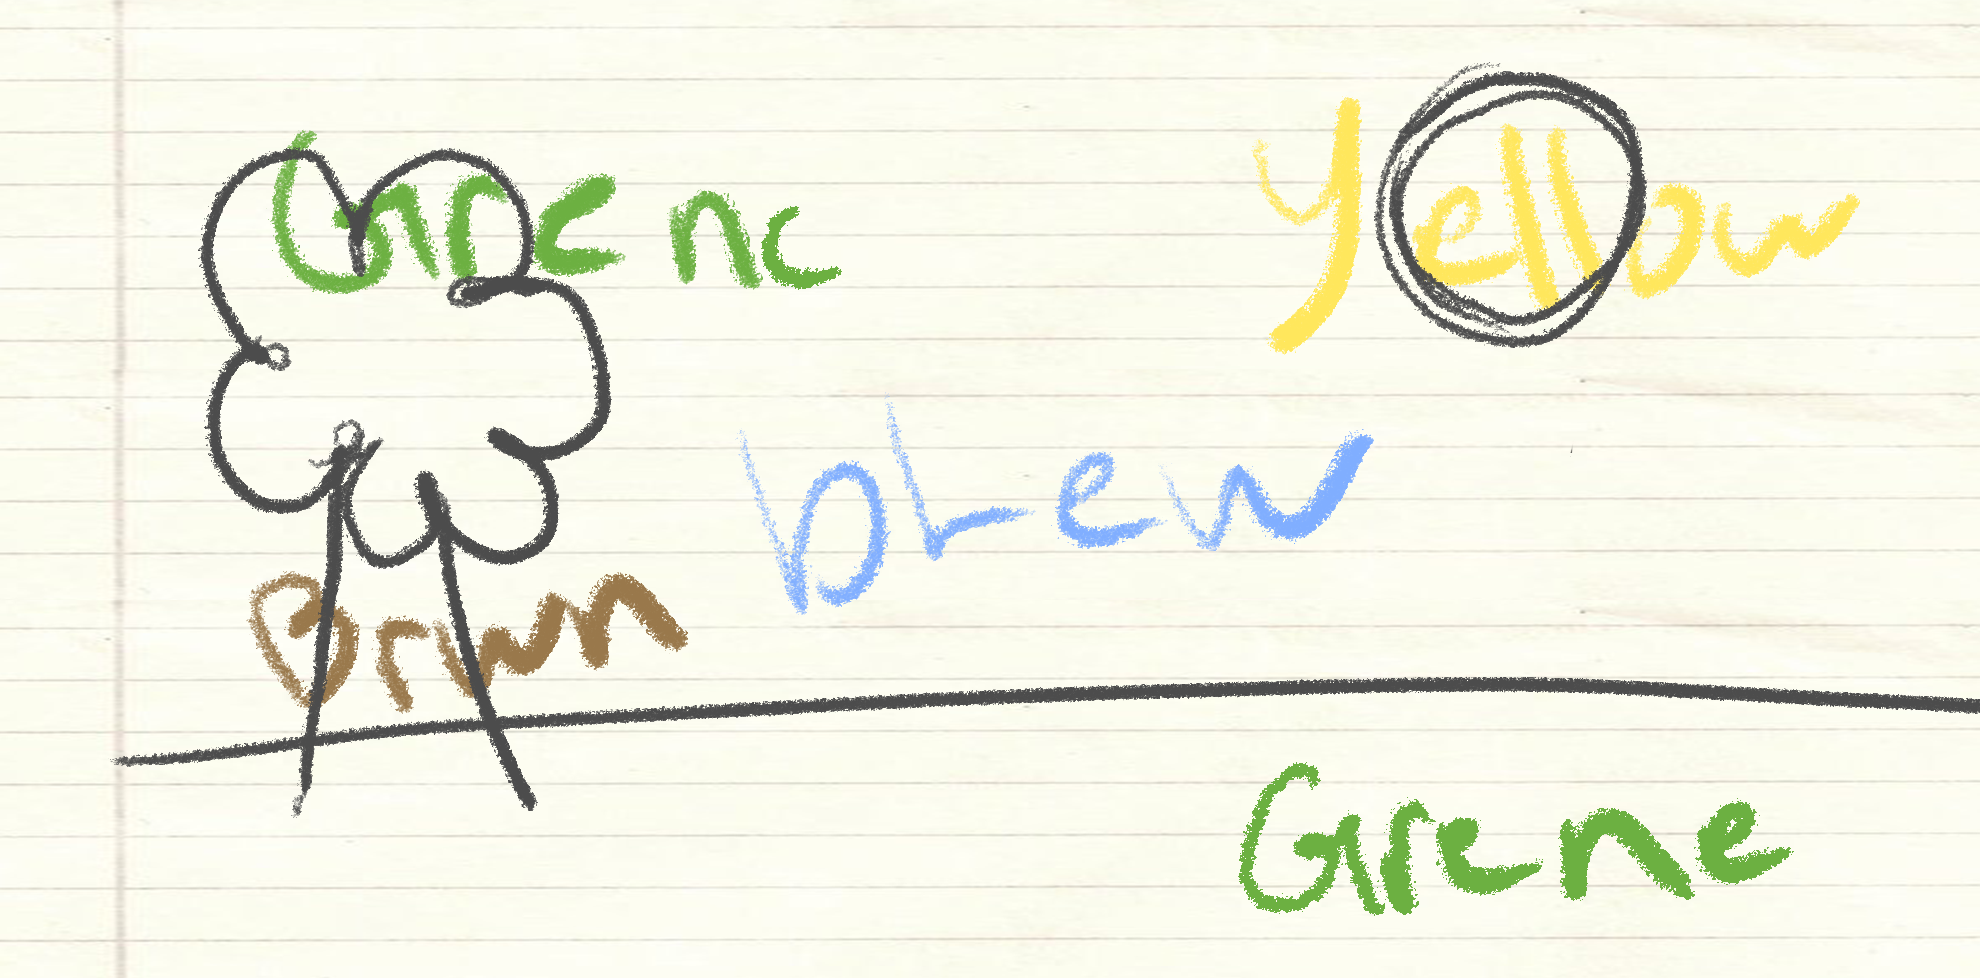 Grene
Yellow
bLew
Brwn
Grene